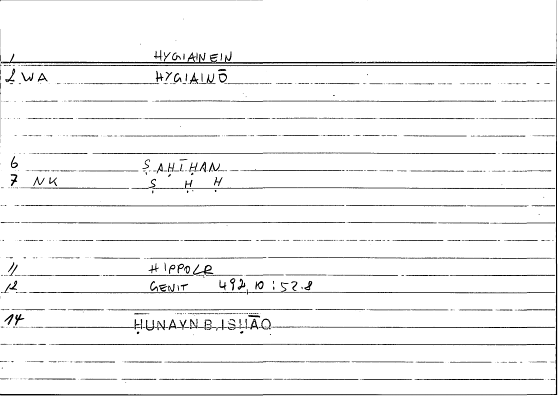 1 HYGIAINEIN
2 WA HYGIAINŌ
6 ṢAḤĪḤAN
7 NK Ṣ Ḥ Ḥ
11 HIPPOCR
12 GENIT 492,10:52.8
14 ḤUNAYN B. ISḤĀQ